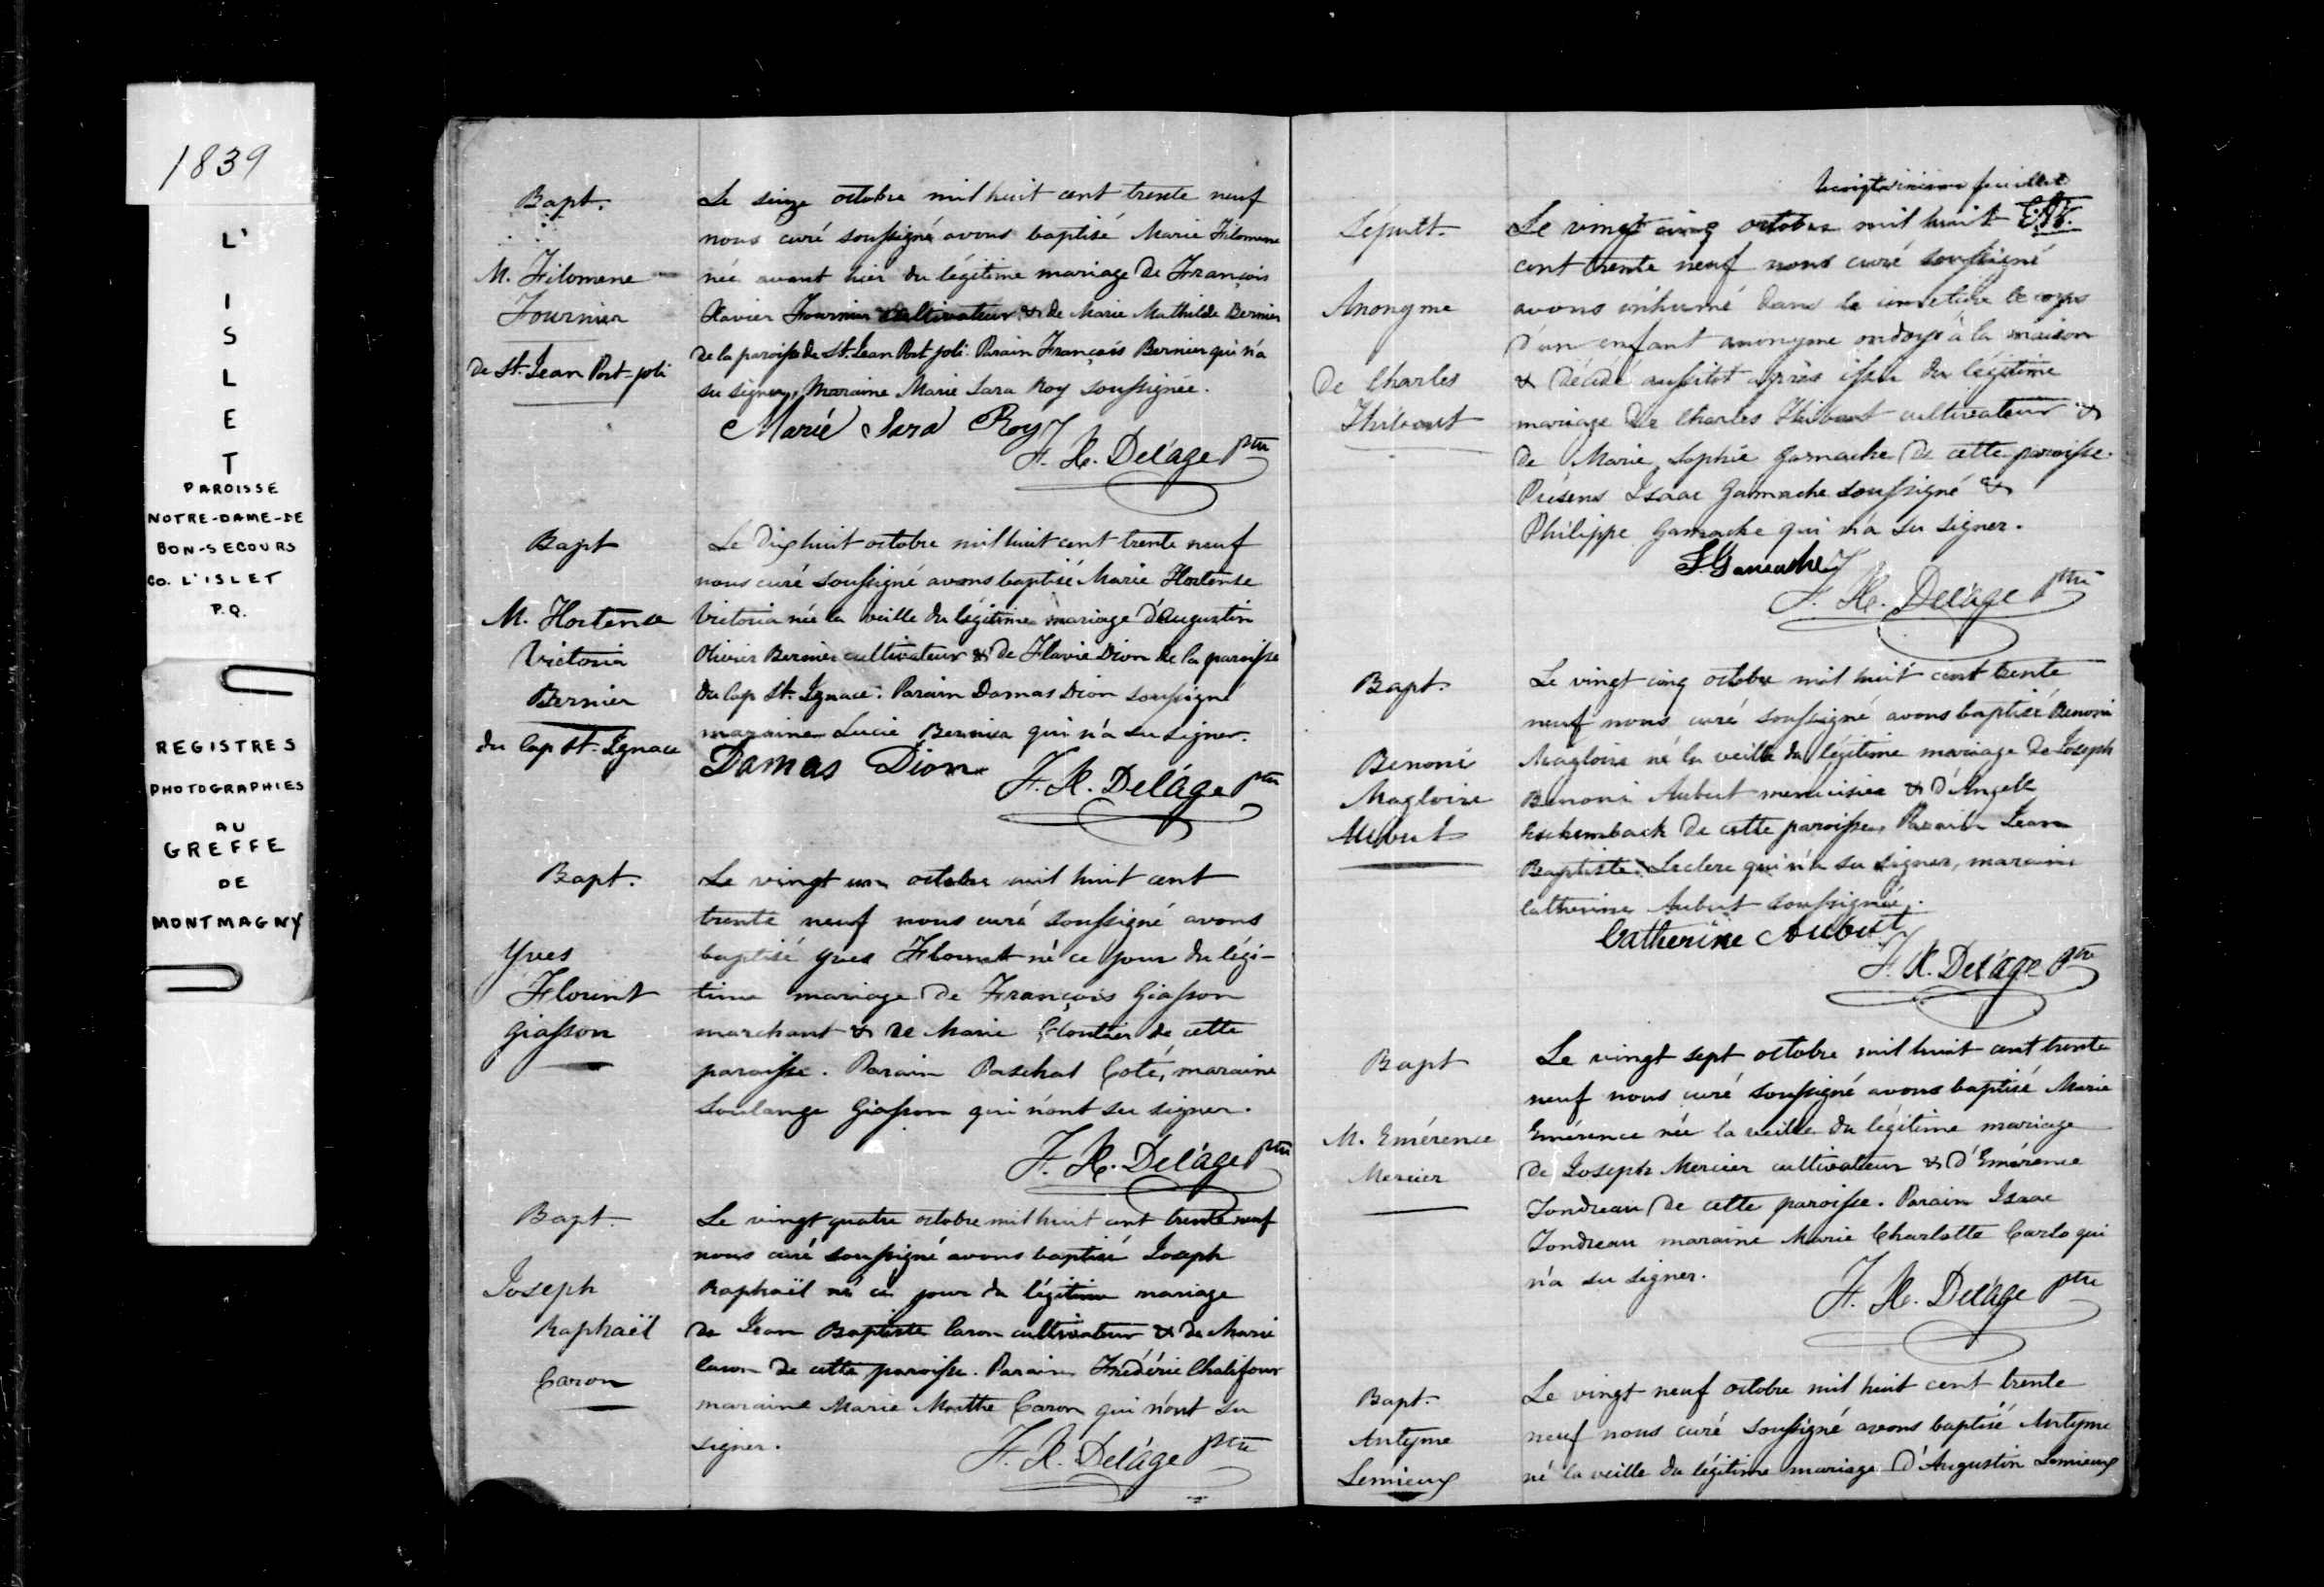 1839
L'
I
S
L
E
T
PAROISSE
NOTRE-DAME-DE
BON-SECOURS
CO. L'ISLET
P.Q.
REGISTRES
PHOTOGRAPHIES
AU
GREFFE
DE
MONTMAGNY
Bapt.
M. Filomene
Fournier
de St. Jean Port-joli
Le seize octobre mil huit cent trente neuf
nous curé soussigné avons baptisé Marie Filomene
née avant hier du légitime mariage de François
Xavier Fournier cultivateur & de Marie Mathilde Bernier
de la paroisse de St. Jean Port joli. Parain François Bernier qui n'a
su signer, Maraine Marie Sara Roy soussignée.
Marie Sara Roy
F. X. Delâge ptre
Bapt
M. Hortense
Victoria
Bernier
du Cap St. Ignace
Le dix huit octobre mil huit cent trente neuf
nous curé soussigné avons baptisé Marie Hortense
Victoria née la veille du légitime mariage d'Augustin
Olivier Bernier cultivateur & de Flavie Dion de la paroisse
du Cap St. Ignace. Parain Damas Dion soussigné
maraine Lucie Bernier qui n'a su signer.
Damas Dion
F. X. Delâge ptre
Bapt.
Yves
Florint
Giasson
Le vingt un octobre mil huit cent
trente neuf nous curé soussigné avons
baptisé Yves né ce jour du légi-
time mariage de François Giasson
marchant & de Marie Cloutier de cette
paroisse. Parain Paschal Coté, maraine
Soulange Giasson qui n'ont su signer.
F. X. Delâge ptre
Bapt.
Joseph
Raphaël
Caron
Le vingt quatre octobre mil huit cent trente neuf
nous curé soussigné avons baptisé Joseph
Raphaël né ce jour du légitime mariage
de Jean Baptiste Caron cultivateur & de Marie
Caron de cette paroisse. Parain Frédéric Chalifour
maraine Marie Marthe Caron qui n'ont su
signer.
F. X. Delâge ptre
feuillet
Sépult.
Anonyme
De Charles
Thibout
Le vingt cinq octobre mil huit
cent trente neuf nous curé soussigné
avons inhumé dans le cimetière le corps
d'un enfant anonyme ondoyé à la maison
& décédé aussitot après issu du légitime
mariage de Charles Thibout cultivateur &
de Marie Sophie Gamache de cette paroisse.
Présens Isaac Gamache soussigné &
Philippe Gamache qui n'a su signer.
I. Gamache
F. X. Delâge ptre
Bapt.
Benoni
Magloire
Aubut
Le vingt cinq octobre mil huit cent trente
neuf nous curé soussigné avons baptisé Benoni
Magloire né la veille du légitime mariage de Joseph
Benoni Aubut menuisier & d'Angele
de cette paroisse, Parain Jean
Baptiste Leclerc qui n'a su signer, maraine
Catherine Aubut soussignée.
Catherine Aubut
F. X. Delâge ptre
Bapt
M. Emérence
Mercier
Le vingt sept octobre mil huit cent trente
neuf nous curé soussigné avons baptisé Marie
Emérence née la veille du légitime mariage
de Joseph Mercier cultivateur & d'Emérence
Tondreau de cette paroisse. Parain Isaac
Tondreau maraine Marie Charlotte qui
n'a su signer.
F. X. Delâge ptre
Bapt.
Antyme
Lemieux
Le vingt neuf octobre mil huit cent trente
neuf nous curé soussigné avons baptisé Antyme
né la veille du légitime mariage d'Augustin Lemieux